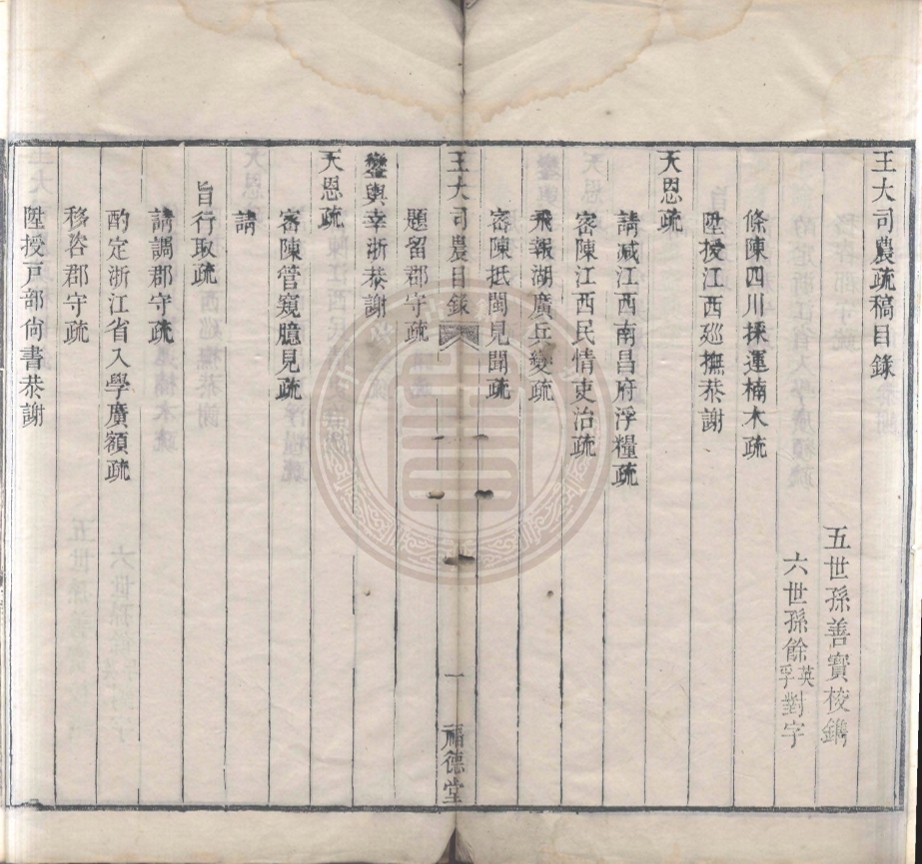 王大司農疏稿目錄
五世孫善寶梭鐫
六世孫餘英孚對字
條陳四川採運楠木疏
陞授江西廵撫恭謝
天恩疏
請減江西南昌府浮糧疏
密陳江西民情吏治疏
飛報湖廣兵變疏
密陳抵閩見聞疏
王大司農目錄
一
福德堂
題留郡守疏
鑾輿幸浙恭謝
天恩疏
密陳管窺臆見疏
請
旨行取疏
請調郡守疏
酌定浙江省入學廣額疏
移咨郡守疏
陞授戸部尙書恭謝